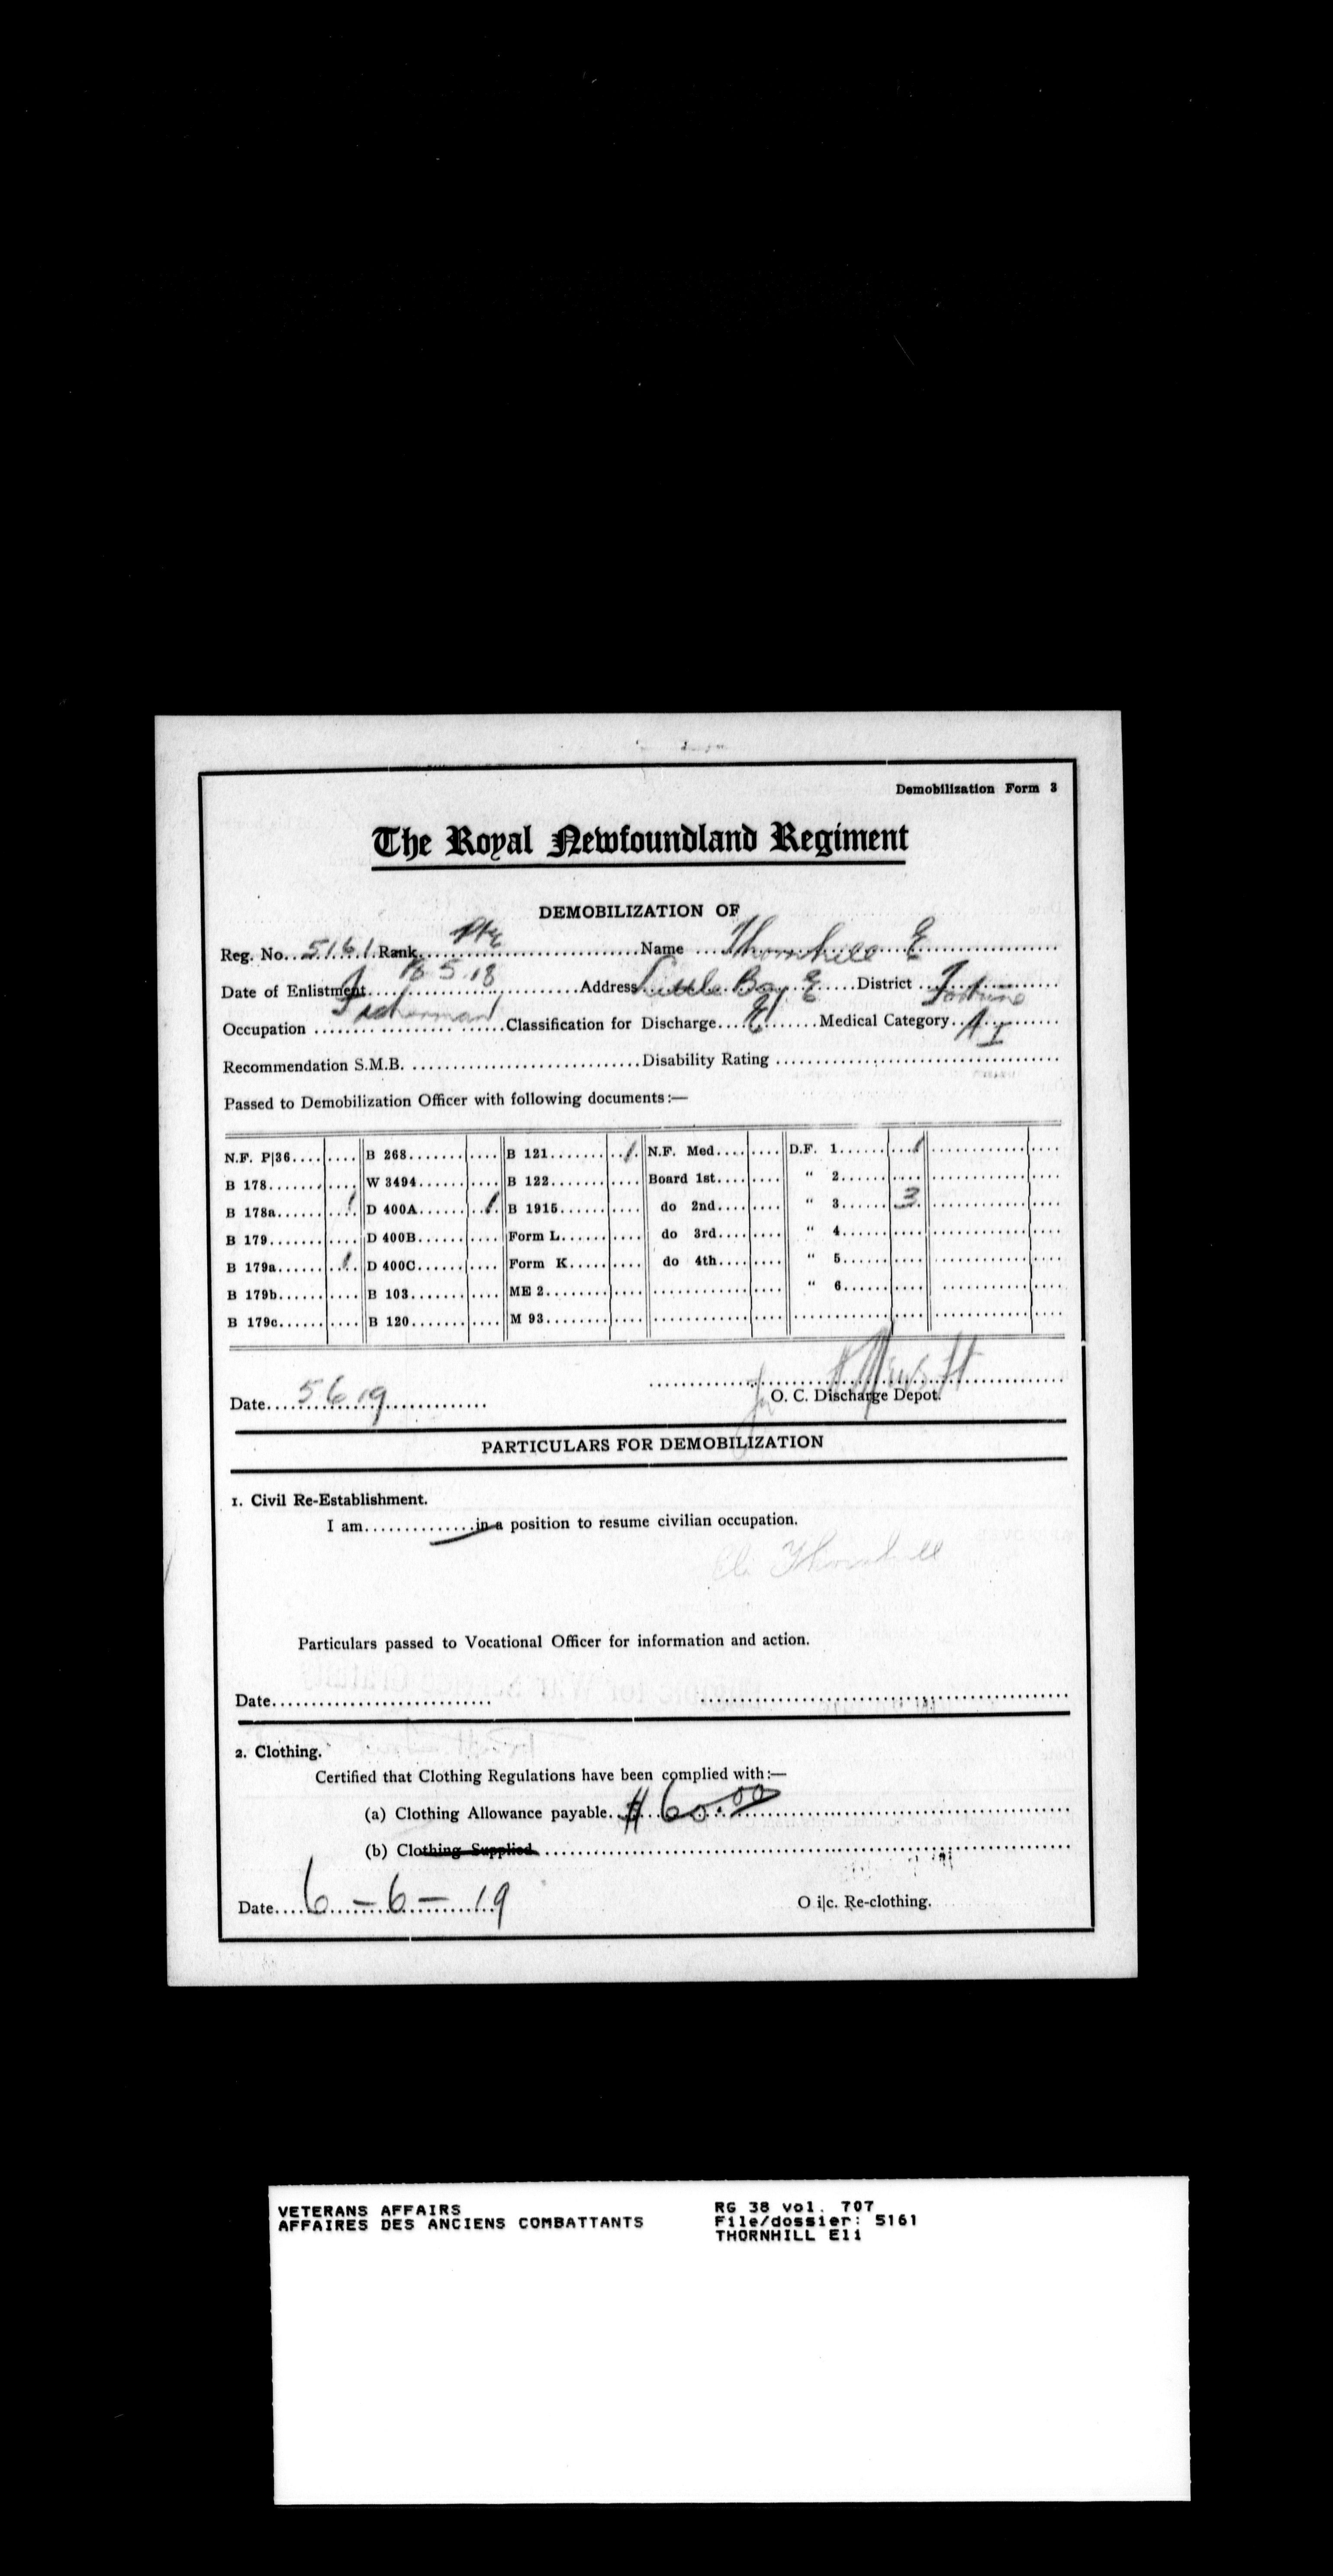 Demobilization Form 3
The Royal Newfoundland Regiment
DEMOBILIZATION OF
Reg. No. 5161 Rank Pte Name Thornhill E
Date of Enlistment 5.18 Address Little Bay E District Fortune
Occupation Fisherman Classification for Discharge E Medical Category A I
Recommendation S.M.B. Disability Rating
Passed to Demobilization Officer with following documents:—
N.F. P|36 B 268 B 121 1 N.F. Med. D.F. 1 1
B 178 W 3494 B 122 Board 1st " 2
B 178a 1 D 400A 1 B 1915 do 2nd " 3 3
B 179 D 400B Form L do 3rd " 4
B 179a 1 D 400C Form K do 4th " 5
B 179b B 103 ME 2 " 6
B 179c B 120 M 93
Date 5 6 19
for
O. C. Discharge Depot.
PARTICULARS FOR DEMOBILIZATION
1. Civil Re-Establishment.
I am in a position to resume civilian occupation.
Eli Thornhill
Particulars passed to Vocational Officer for information and action.
Date
2. Clothing.
Certified that Clothing Regulations have been complied with:—
(a) Clothing Allowance payable $60.00
(b) Clothing Supplied
Date 6-6-19 O i|c. Re-clothing.
VETERANS AFFAIRS RG 38 vol. 707
AFFAIRES DES ANCIENS COMBATTANTS File/dossier: 5161
THORNHILL Eli